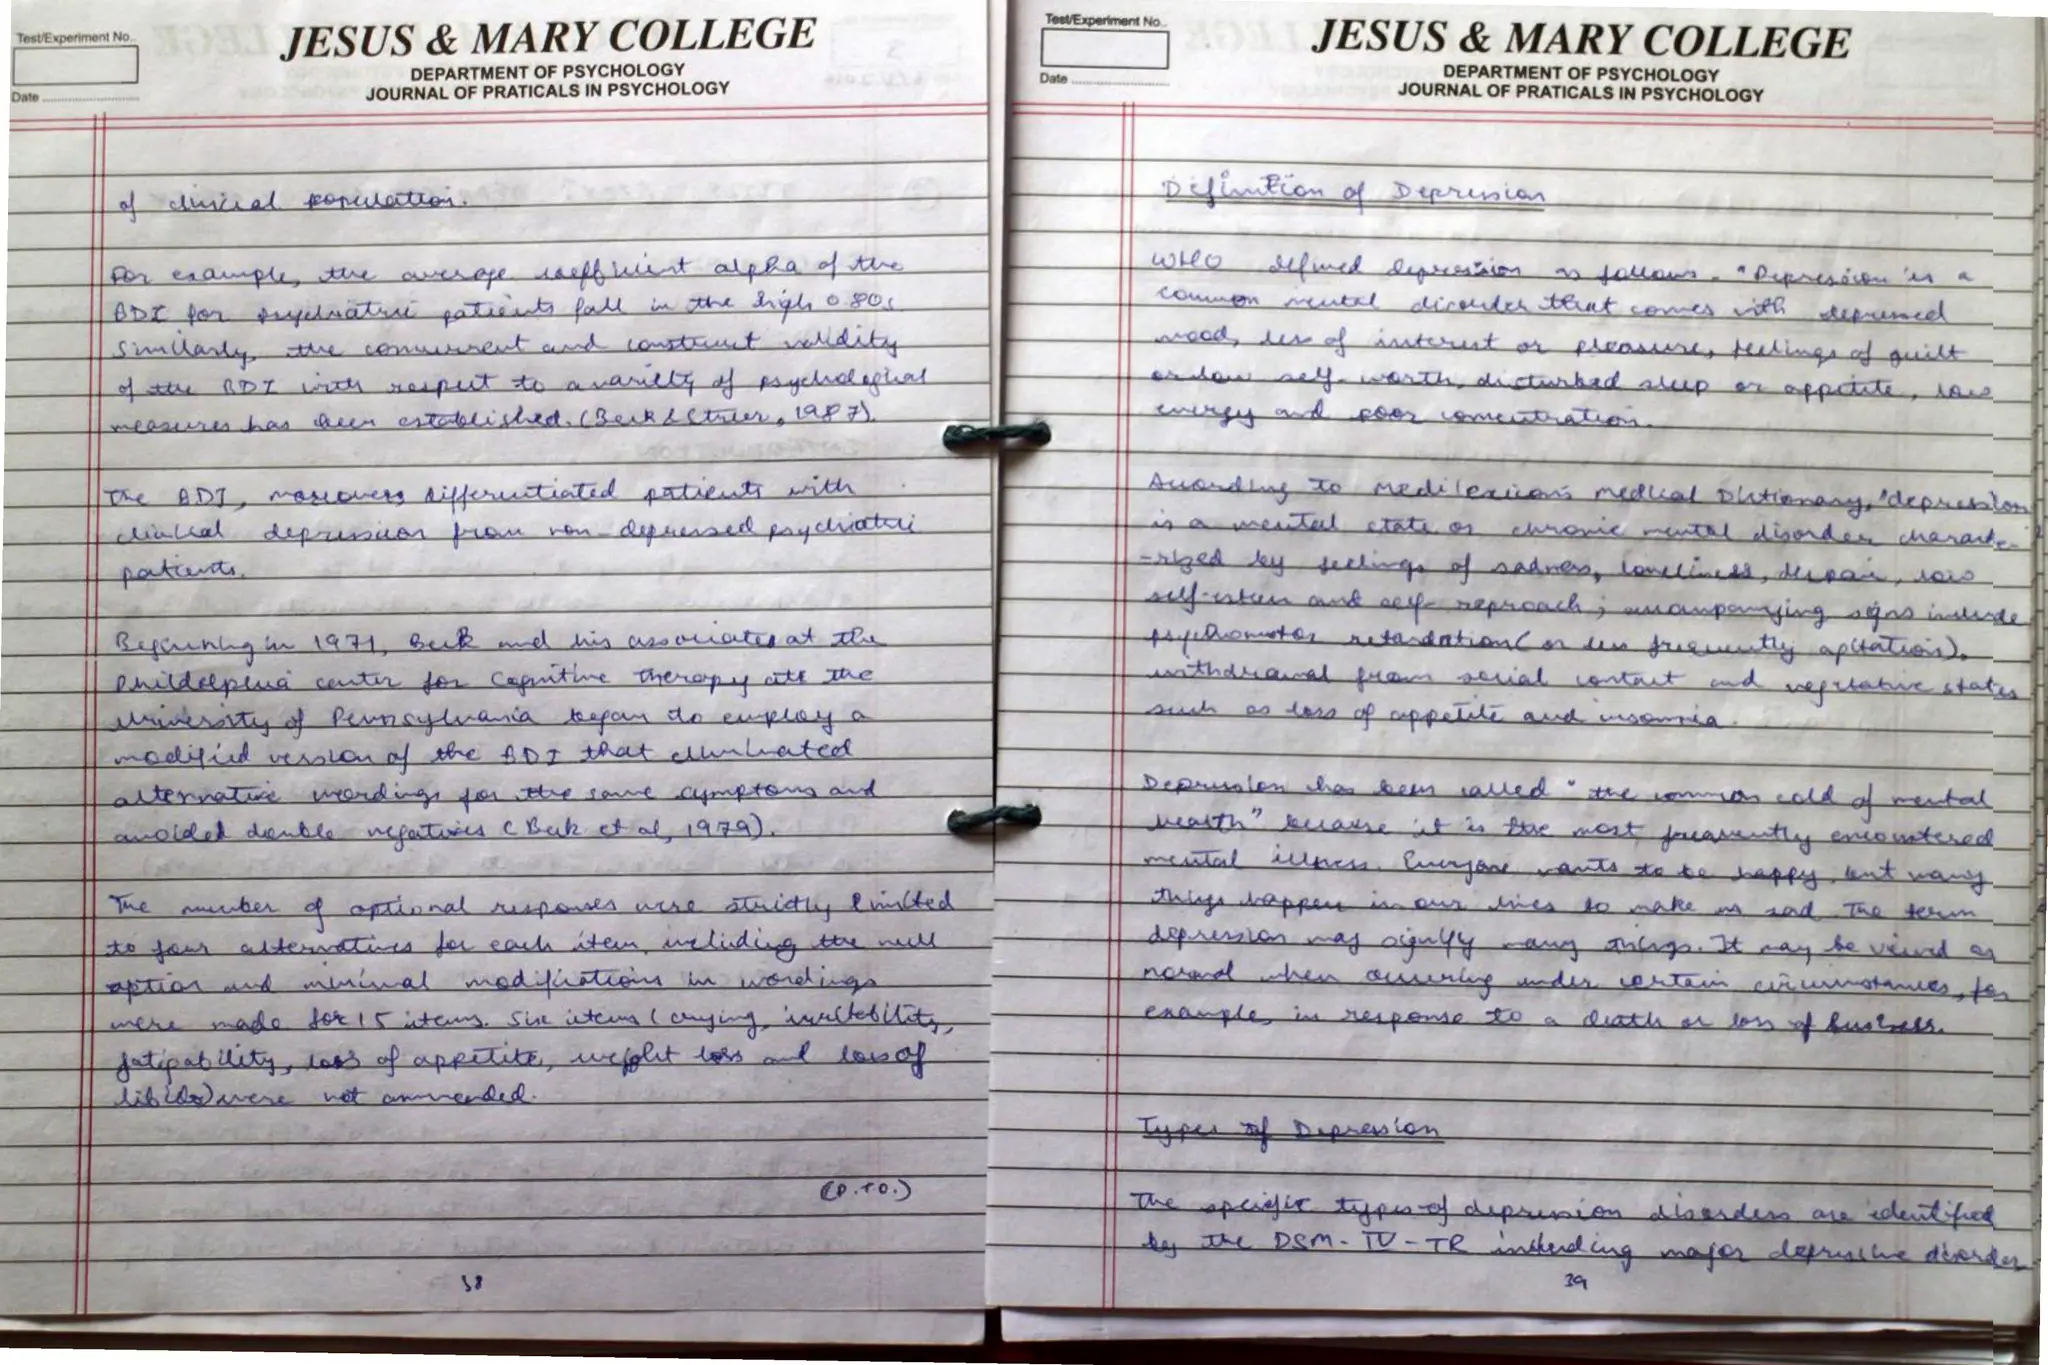 Test/Experiment No..
JESUS & MARY COLLEGE
DEPARTMENT OF PSYCHOLOGY
JOURNAL OF PRATICALS IN PSYCHOLOGY
Date
of clinical population.
For example, the average coefficient alpha of the
BDI for psychiatric patients fall in the high 0.80s.
Similarly, the concurrent and construct validity
of the BDI with respect to a variety of psychological
measures has been established. (Beck & Steer, 1987).
The BDI, moreover, differentiated patients with
clinical depression from non-depressed psychiatric
patients.
Beginning in 1971, Beck and his associates at the
center for Cognitive therapy at the
University of Pennsylvania began to employ a
modified version of the BDI that eliminated
alternative wordings for the same symptoms and
avoided double negatives (Beck et al, 1979).
The number of optional responses were strictly limited
to four alternatives for each item, including the null
option and minimal modifications in wordings
were made for 15 items. Six items (crying, irritability,
fatigability, loss of appetite, weight loss and loss of
libido) were not ammended.
(P.T.O.)
38
Test/Experiment No..
JESUS & MARY COLLEGE
DEPARTMENT OF PSYCHOLOGY
JOURNAL OF PRATICALS IN PSYCHOLOGY
Date
Definition of Depression
WHO defined depression as follows - "Depression is a
common mental disorder that comes with depressed
mood, loss of interest or pleasure, feelings of guilt
or low self-worth, disturbed sleep or appetite, low
energy and poor concentration.
According to Medilexicon's Medical Dictionary, "depression
is a mental state or chronic mental disorder characte-
-rized by feelings of sadness, loneliness, despair, low
self-esteem and self-reproach; accompanying signs include
psychomotor retardation (or less frequently agitation),
withdrawal from social contact and vegetative states
such as loss of appetite and insomnia.
Depression has been called "the common cold of mental
health" because it is the most frequently encountered
mental illness. Everyone wants to be happy, but many
things happen in our lives to make us sad. The term
depression may signify many things. It may be viewed as
normal when occurring under certain circumstances, for
example, in response to a death or loss of business.
Types of Depression
The specific types of depression disorders are identified
by the DSM-IV-TR including major depressive disorder
39